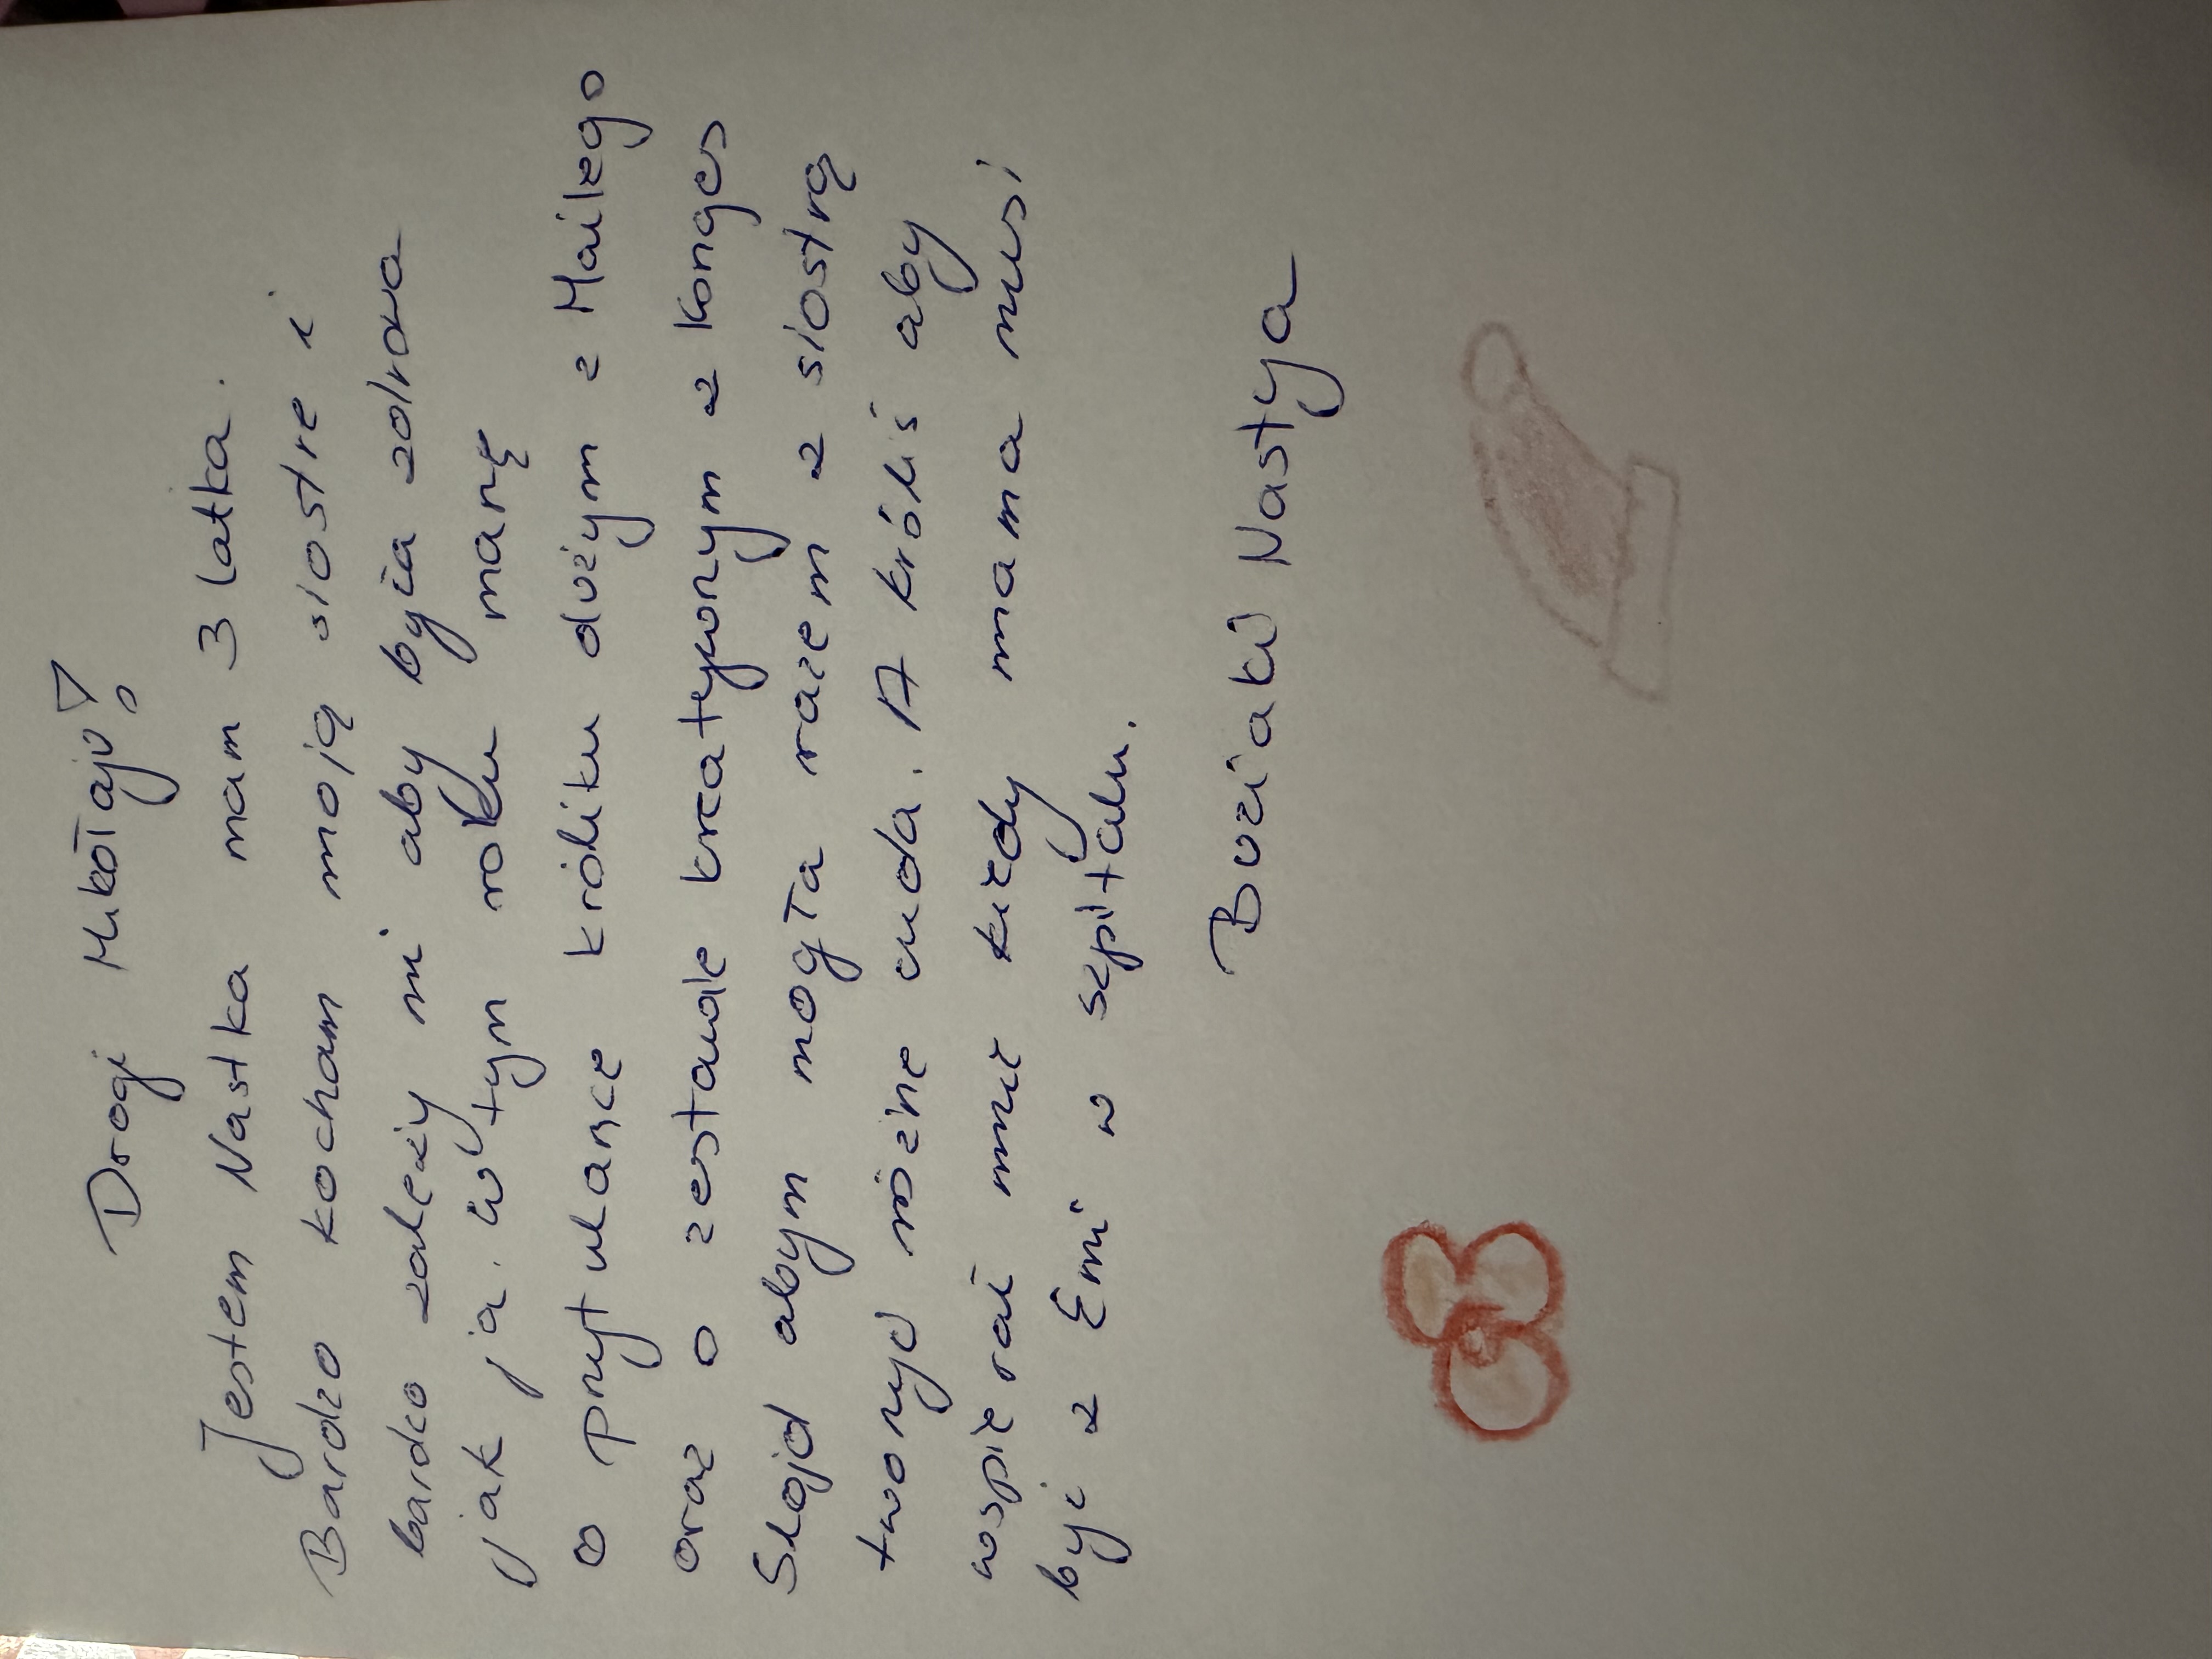 Drogi Mikołaju!
Jestem Nastka mam 3 latka.
Bardzo kocham moją siostrę i
bardzo zależy mi aby była zdrowa
jak ja. W tym roku marzę
o przytulance króliku dużym z Maileg o
oraz o zestawie kreatywnym z Konges
Slojd abym mogła razem z siostrą
tworzyć różne cuda. A króliś aby
wspierał mnie kiedy mama musi
być z Emi w szpitalu.
Buziaki Nastya